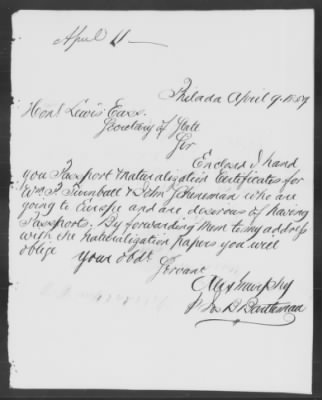 April 11
Philada April 9. 1859
Honl. Lewis Cass.
Secretary of State
Sir
Enclosed I hand
you Passport & Naturalization Certificates for
Wm P. Turnbull & John Scheneman who are
going to Europe and are desirous of having
Passports. By forwarding them to my address
with the Naturalization Papers you will
oblige your obdt.
Servant
Alex Murphy
B Bartleman